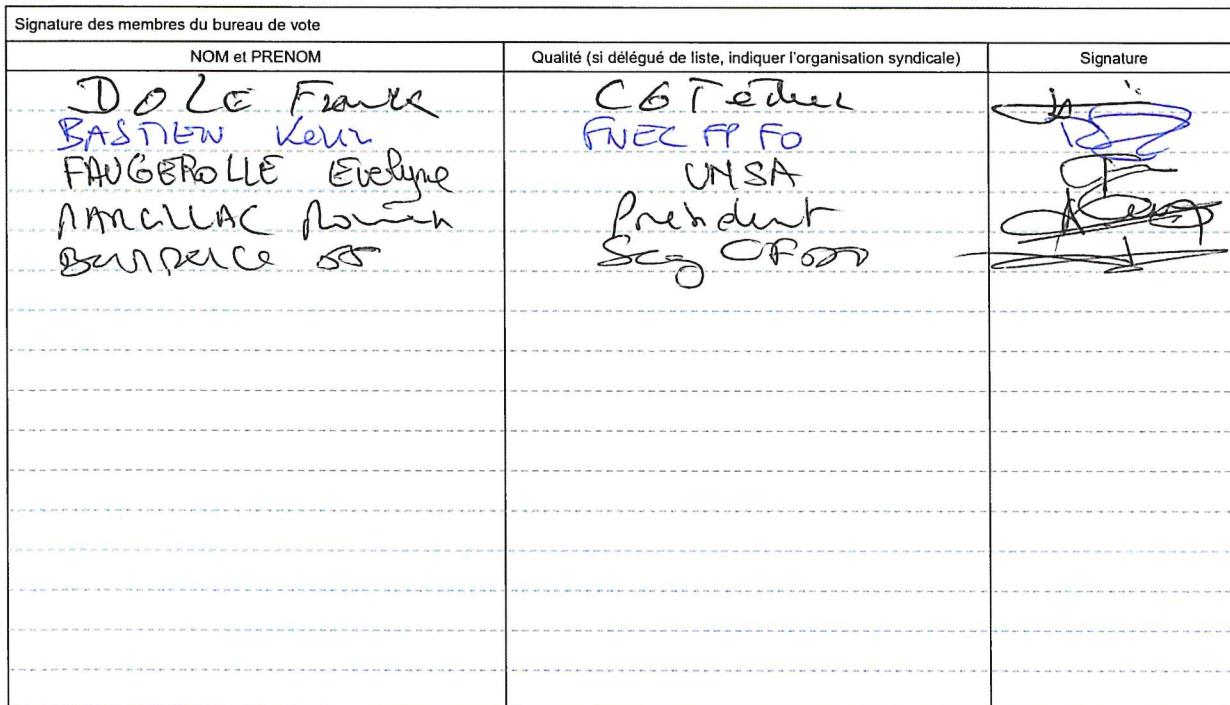 Signature des membres du bureau de vote
NOM et PRENOM Qualité (si délégué de liste, indiquer l'organisation syndicale) Signature
DOLE Franck CGT Educ
BASTIEN FNEC FP FO
FAUGEROLLE Evelyne UNSA
MARCILLAC Romain Président